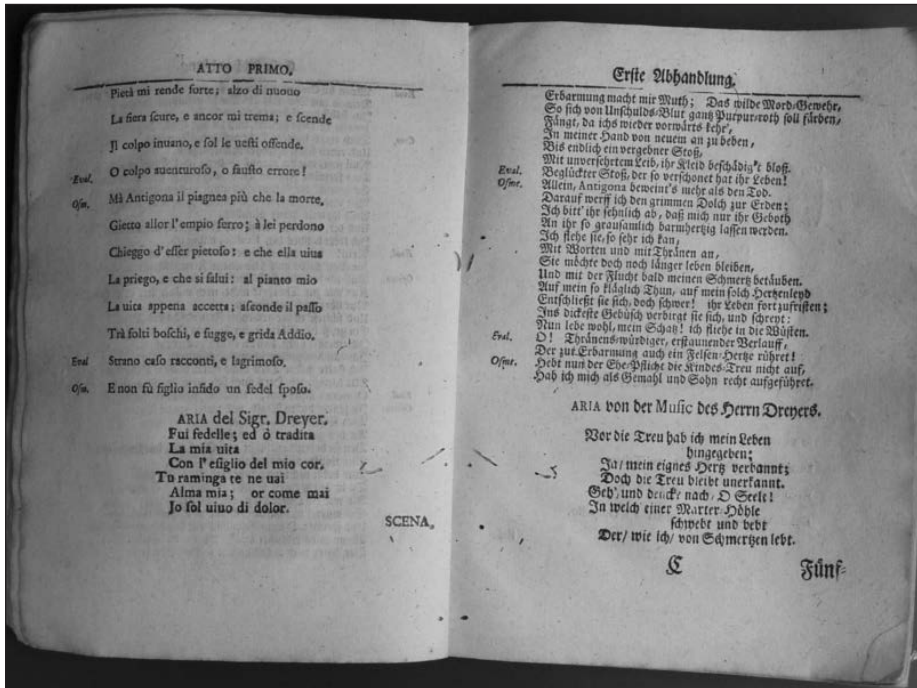 ATTO PRIMO.
Pietà mi rende forte; alzo di nuouo
La fiera scure, e ancor mi trema; e scende
Jl colpo inuano, e sol le uesti offende.
Eval. O colpo auenturoso, o fausto errore!
Osm. Mà Antigona il piagnea più che la morte,
Gietto allor l'empio ferro; à lei perdono
Chieggo d'esser pietoso: e che ella uiua
La priego, e che si salui: al pianto mio
La uita appena accetta; asconde il passo
Trà folti boschi, e fugge, e grida Addio.
Eval Strano caso racconti, e lagrimoso.
Osm. E non fù figlio infido un fedel sposo.
ARIA del Sigr. Dreyer.
Fui fedelle; ed ò tradita
La mia uita
Con l'esiglio del mio cor.
Tu raminga te ne uai
Alma mia; or come mai
Jo sol uiuo di dolor.
SCENA.
Erste Abhandlung.
Erbarmung macht mir Muth; Das wilde Mord-Gewehr,
So sich von Unschulds-Blut gantz Purpur-roth soll färben,
Fängt, da ichs wieder vorwärts kehr',
In meiner Hand von neuem an zu beben,
Bis endlich ein vergebner Stoß,
Mit unversehrtem Leib, ihr Kleid beschädig't bloß.
Eval. Beglückter Stoß, der so verschonet hat ihr Leben!
Osmt. Allein, Antigona beweint's mehr als den Tod.
Darauf werff ich den grimmen Dolch zur Erden;
Ich bitt' ihr sehnlich ab, daß mich nur ihr Geboth
An ihr so grausamlich barmhertzig lassen werden.
Ich flehe sie, so sehr ich kan,
Mit Worten und mit Thränen an,
Sie möchte doch noch länger leben bleiben,
Und mit der Flucht bald meinen Schmertz betäuben.
Auf mein so kläglich Thun, auf mein solch Hertzenleyd
Entschließt sie sich, doch schwer! ihr Leben fort zufristen;
Ins dickeste Gebüsch verbirgt sie sich, und schreyt:
Nun lebe wohl, mein Schatz! ich fliehe in die Wüsten.
Eval. O! Thränens-würdiger, erstaunender Verlauff,
Der zur Erbarmung auch ein Felsen-Hertze rühret!
Osmt. Hebt nun der Ehe-Pflicht die Kindes-Treu nicht auf,
Hab ich mich als Gemahl und Sohn recht aufgeführet.
ARIA von der Music des Herrn Dreyers.
Vor die Treu hab ich mein Leben
hingegeben;
Ja/ mein eignes Hertz verbannt;
Doch die Treu bleibt unerkannt.
Geh', und dencke nach, O Seele!
In welch einer Marter-Höhle
schwebt und bebt
Der/ wie ich/ von Schmertzen lebt.
C Fünf-